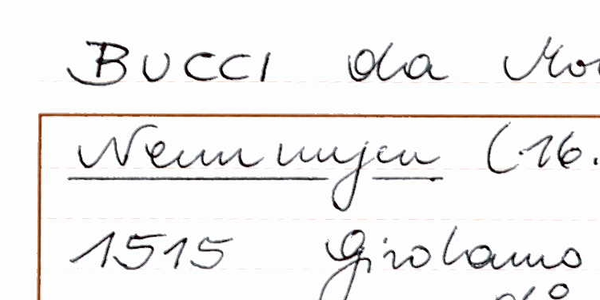 BUCCI da Mo
Nennungen (16.
1515 Girolamo
do